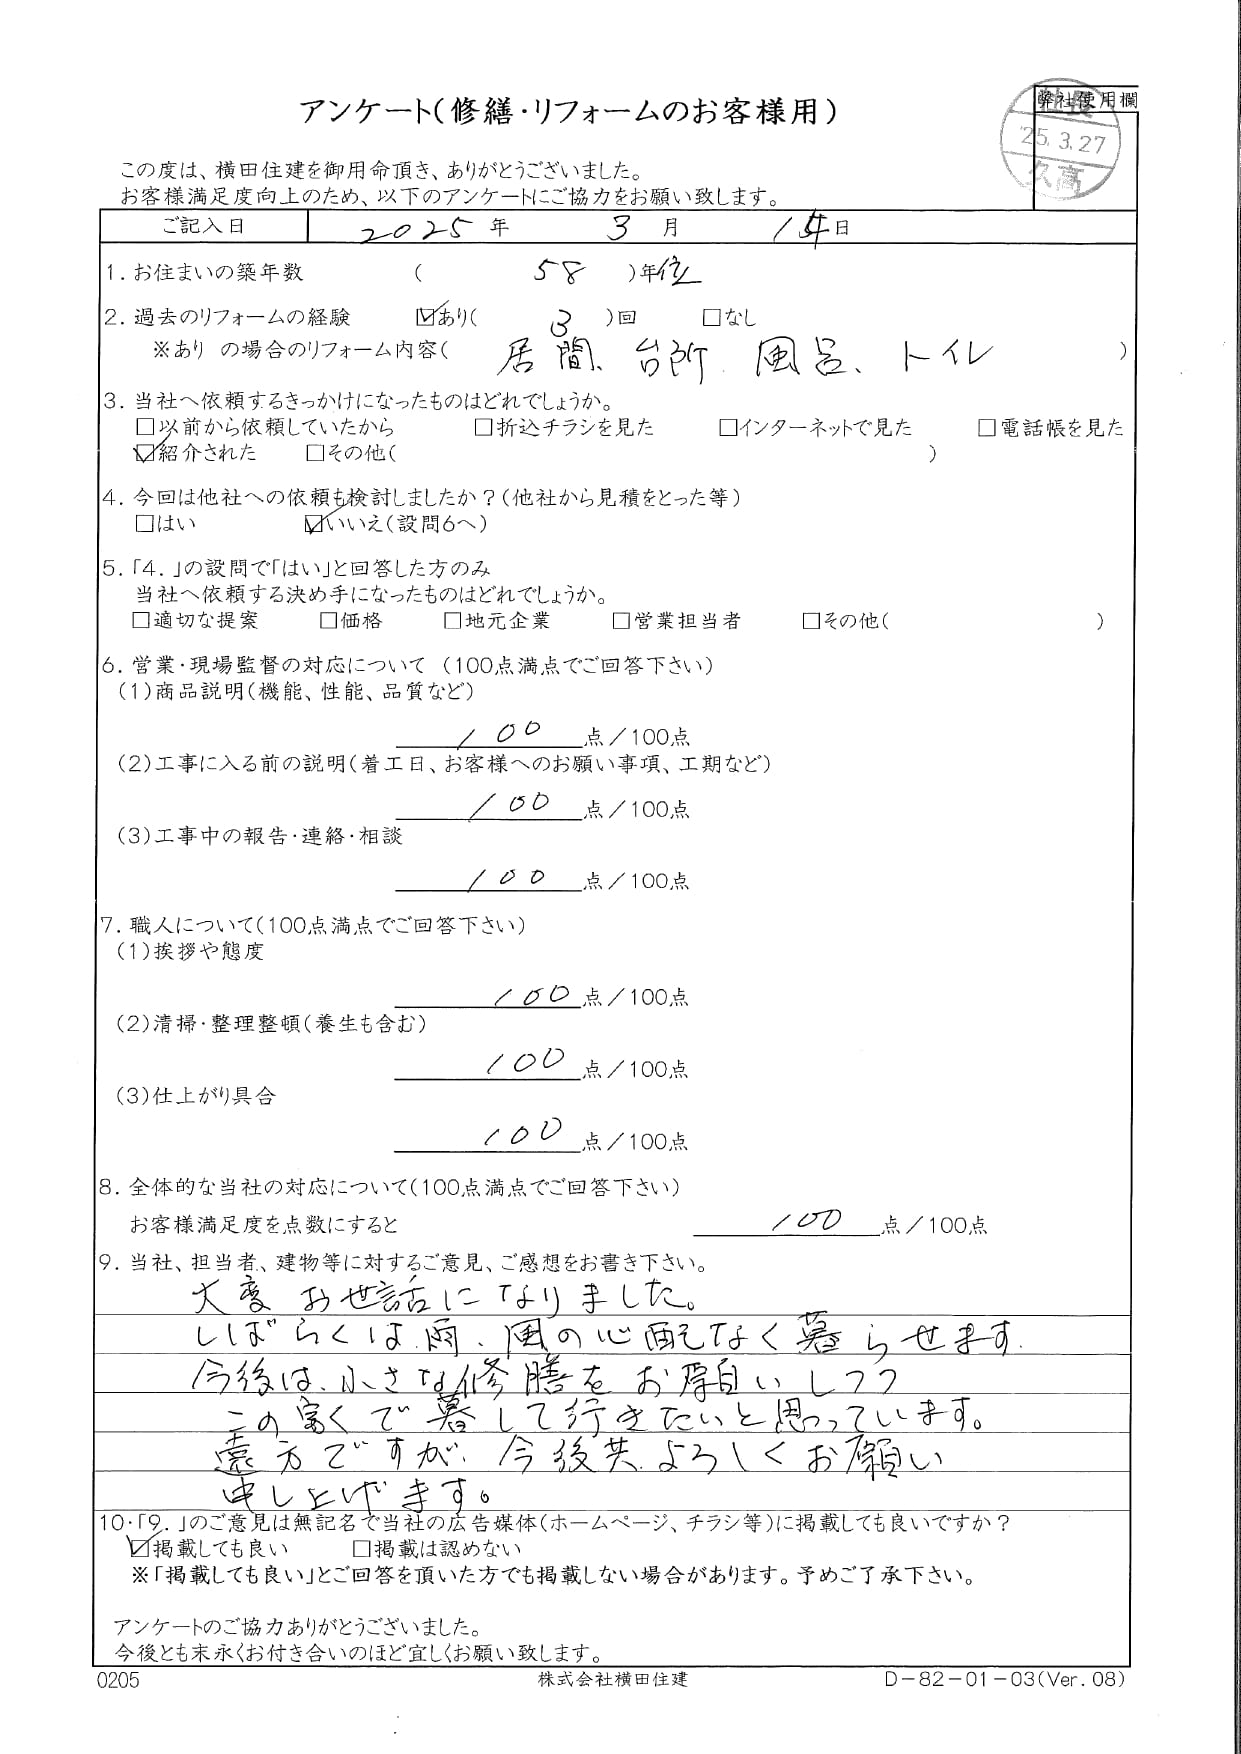 アンケート(修繕・リフォームのお客様用)
弊社使用欄
社長
'25.3.27
久高
この度は、横田住建を御用命頂き、ありがとうございました。
お客様満足度向上のため、以下のアンケートにご協力をお願い致します。
ご記入日 2025年 3月 14日
1.お住まいの築年数 ( 58 )年位
2.過去のリフォームの経験 ☑あり( 3 )回 □なし
※あり の場合のリフォーム内容( 居間、台所、風呂、トイレ )
3.当社へ依頼するきっかけになったものはどれでしょうか。
□以前から依頼していたから □折込チラシを見た □インターネットで見た □電話帳を見た
☑紹介された □その他( )
4.今回は他社への依頼も検討しましたか?(他社から見積をとった等)
□はい ☑いいえ(設問6へ)
5.「4.」の設問で「はい」と回答した方のみ
当社へ依頼する決め手になったものはどれでしょうか。
□適切な提案 □価格 □地元企業 □営業担当者 □その他( )
6.営業・現場監督の対応について (100点満点でご回答下さい)
(1)商品説明(機能、性能、品質など)
100 点/100点
(2)工事に入る前の説明(着工日、お客様へのお願い事項、工期など)
100 点/100点
(3)工事中の報告・連絡・相談
100 点/100点
7.職人について(100点満点でご回答下さい)
(1)挨拶や態度
100 点/100点
(2)清掃・整理整頓(養生も含む)
100 点/100点
(3)仕上がり具合
100 点/100点
8.全体的な当社の対応について(100点満点でご回答下さい)
お客様満足度を点数にすると 100 点/100点
9.当社、担当者、建物等に対するご意見、ご感想をお書き下さい。
大変お世話になりました。
しばらくは雨、風の心配なく暮らせます.
今後は、小さな修膳をお願いしつつ
この家で暮して行きたいと思っています。
遠方ですが、今後共よろしくお願い
申し上げます。
10・「9.」のご意見は無記名で当社の広告媒体(ホームページ、チラシ等)に掲載しても良いですか?
☑掲載しても良い □掲載は認めない
※「掲載しても良い」とご回答を頂いた方でも掲載しない場合があります。予めご了承下さい。
アンケートのご協力ありがとうございました。
今後とも末永くお付き合いのほど宜しくお願い致します。
0205 株式会社横田住建 D-82-01-03(Ver.08)